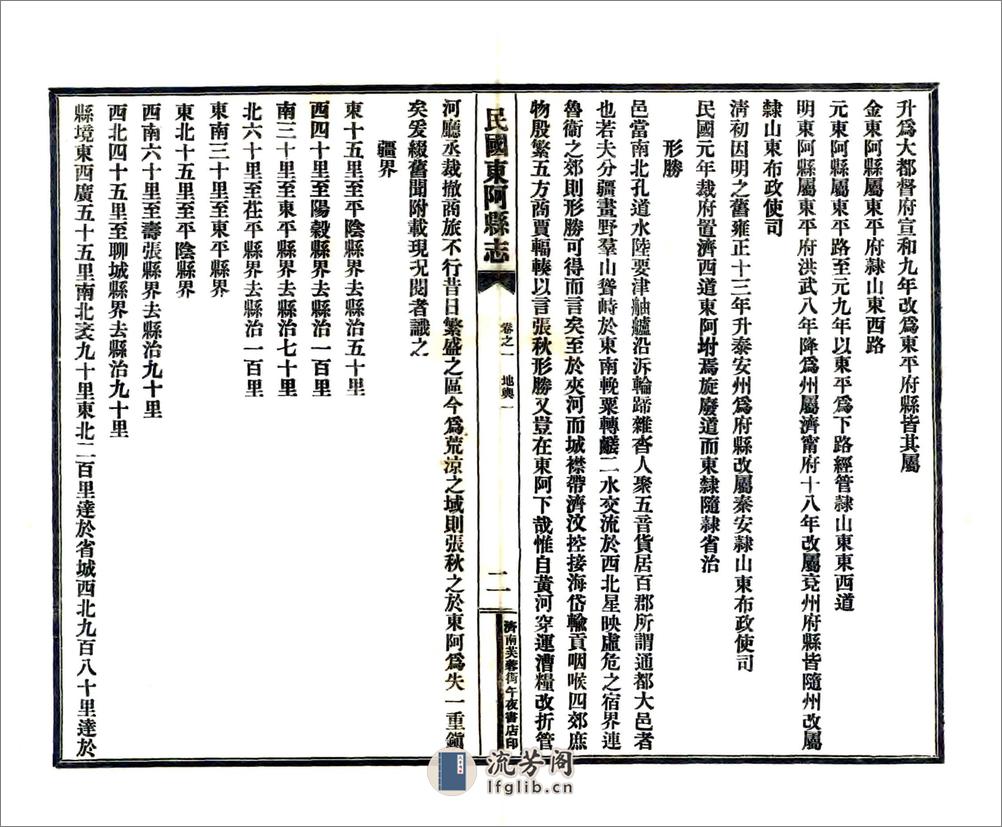 升爲大都督府宣和九年改爲東平府縣皆其屬
金東阿縣屬東平府隸山東西路
元東阿縣屬東平路至元九年以東平爲下路經管隸山東東西道
明東阿縣屬東平府洪武八年降爲州屬濟甯府十八年改屬兗州府縣皆隨州改屬
隸山東布政使司
淸初因明之舊雍正十三年升泰安州爲府縣改屬泰安隸山東布政使司
民國元年裁府置濟西道東阿坿焉旋廢道而東隸隨隸省治
形勝
邑當南北孔道水陸要津舳艫沿泝輪蹄雜沓人聚五音貨居百郡所謂通都大邑者
也若夫分疆畫野羣山聳峙於東南輓粟轉艤二水交流於西北星映虛危之宿界連
魯衛之郊則形勝可得而言矣至於夾河而城襟帶濟汶控接海岱輸貢咽喉四郊庶
物殷繁五方商賈輻輳以言張秋形勝又豈在東阿下哉惟自黃河穿運漕糧改折管
民國東阿縣志
卷之一 地輿一
二
濟南芙蓉街午夜書店印
河廳丞裁撤商旅不行昔日繁盛之區今爲荒涼之域則張秋之於東阿爲失一重鎭
矣爰綴舊聞附載現況閱者識之
疆界
東十五里至平陰縣界去縣治五十里
西四十里至陽穀縣界去縣治一百里
南三十里至東平縣界去縣治七十里
北六十里至茌平縣界去縣治一百里
東南三十里至東平縣界
東北十五里至平陰縣界
西南六十里至壽張縣界去縣治九十里
西北四十五里至聊城縣界去縣治九十里
縣境東西廣五十五里南北袤九十里東北二百里達於省城西北九百八十里達於
流芳阁
lfglib.cn